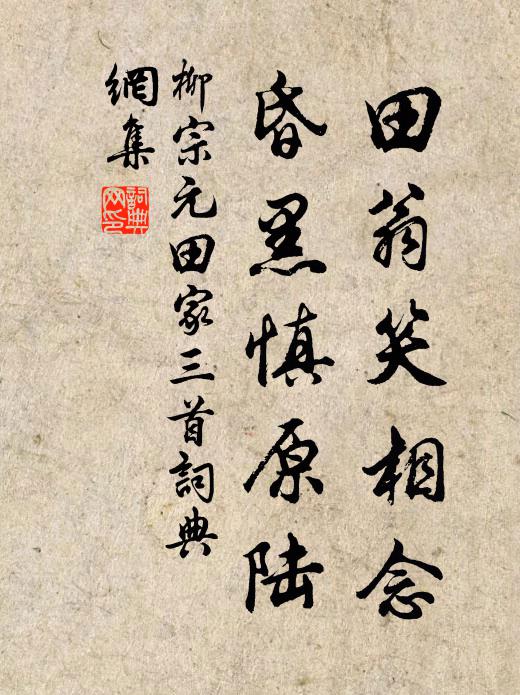 田翁笑相念
昏黑慎原陆
柳宗元田家三首詞典
網集
詞典网印